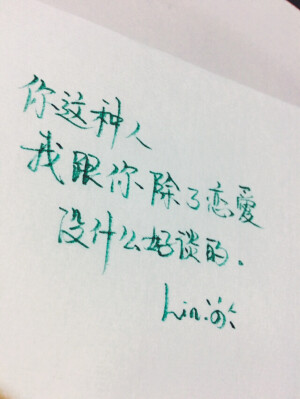 你这种人
我跟你除了恋爱
没什么好谈的.
Lin.